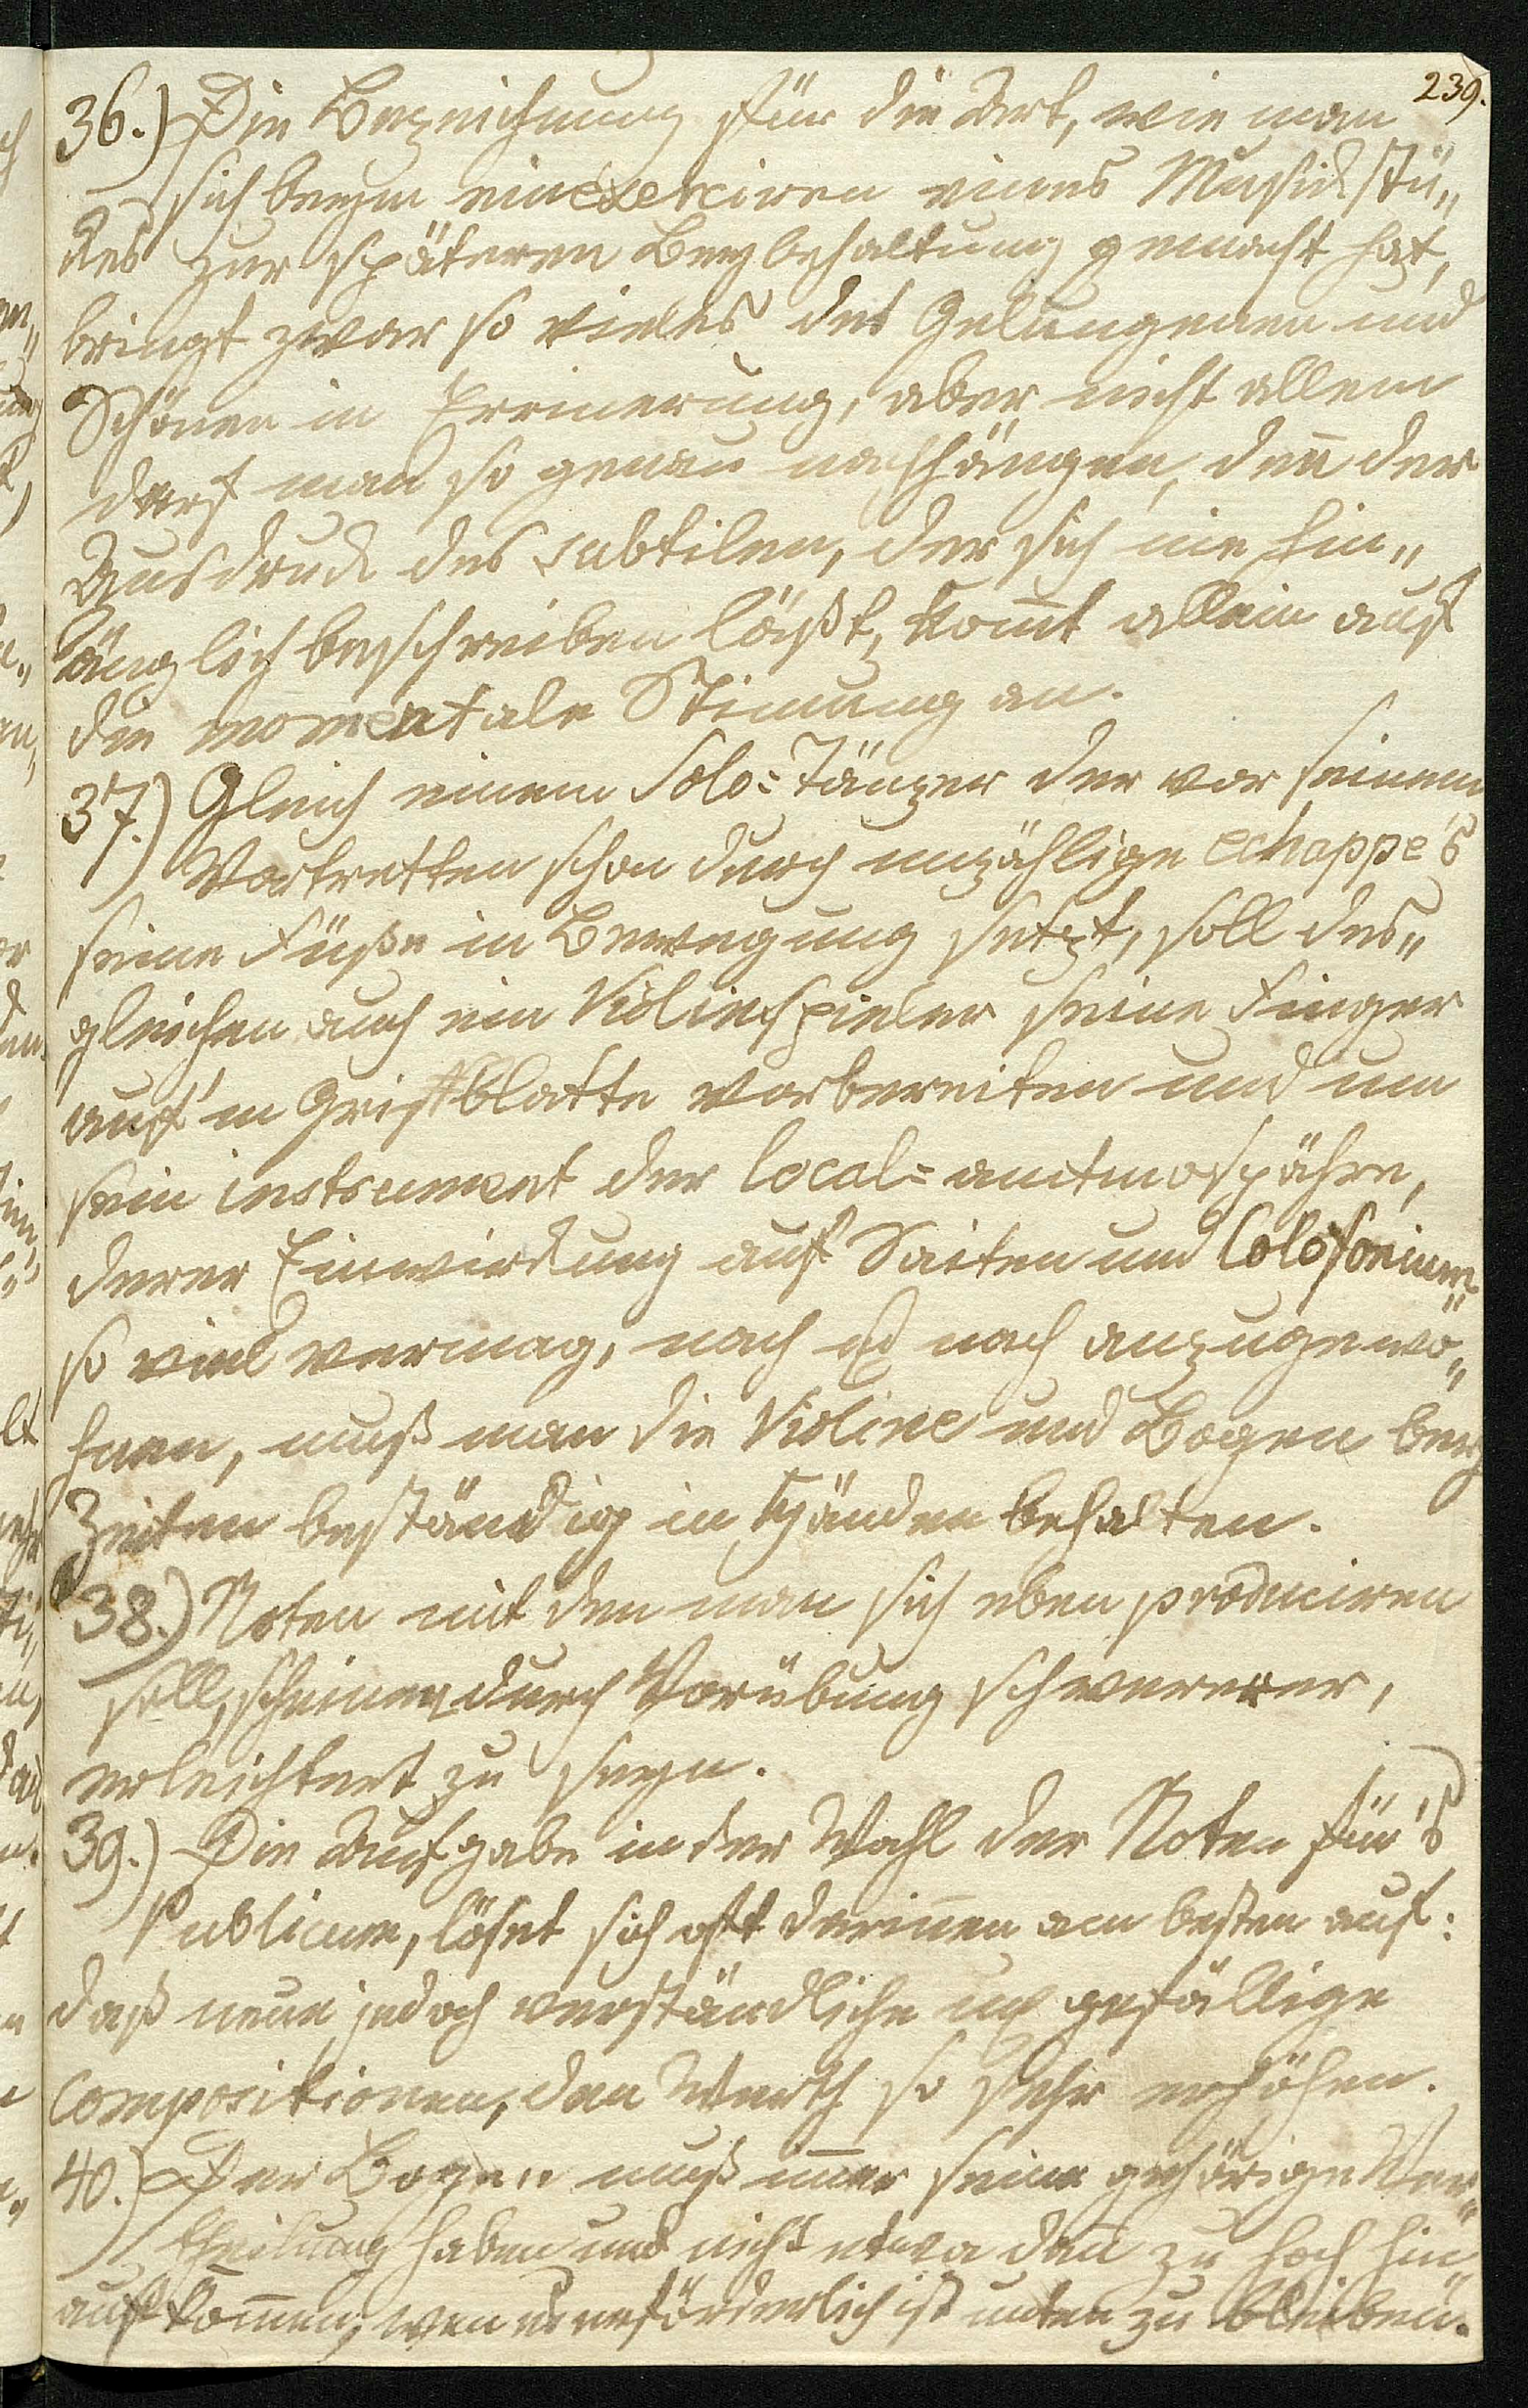 239.
36.) Die Bezeichnung für die Art, wie man
sich beym einexerciren eines Musickstü„
kes zur späteren Beybehaltung gemacht hat,
bringt zwar so vieles des Gelungenen und
Schönen in Erinerung, aber nicht allem
darf man so genau nachhängen, den̄ der
Ausdruck des subtilen, der sich nie hin„
länglich beschreiben läßt, kom̄t allein auf
die momentale Stim̄ung an.
37.) Gleich einem Solo=Tänzer der vor seinem
Vortretten schon durch unzählige echappe's
seine Füße in Bewegung setzt, soll des„
gleichen auch ein Violinspieler seine Finger
auf'm Griffblatte vorbereiten und um
sein instrument der local=amtmospähre,
derer Einwirkung auf Saiten und Colofonium„
so viel vermag, nach und nach anzugewö„
hnen, muß man die Violine und Bogen bey
Zeiten beständig in Händen behalten.
38.) Noten mit den man sich eben produciren
soll, scheinen durch Vorübung schwererer,
erleichtert zu seyn.
39.) Die Aufgabe in der Wahl der Noten für's
Publicum, löset sich oft darin̄en am besten auf:
daß neue jedoch verständliche und gefällige
Compositionen, den Werth so sehr erhöhen.
40.) Der Bogen muß im̄er seine gehörige Ver„
theilung haben und nicht etwa dan̄ zu hoch hin„
auf kom̄en, wen es erforderlich ist unten zu bleiben.